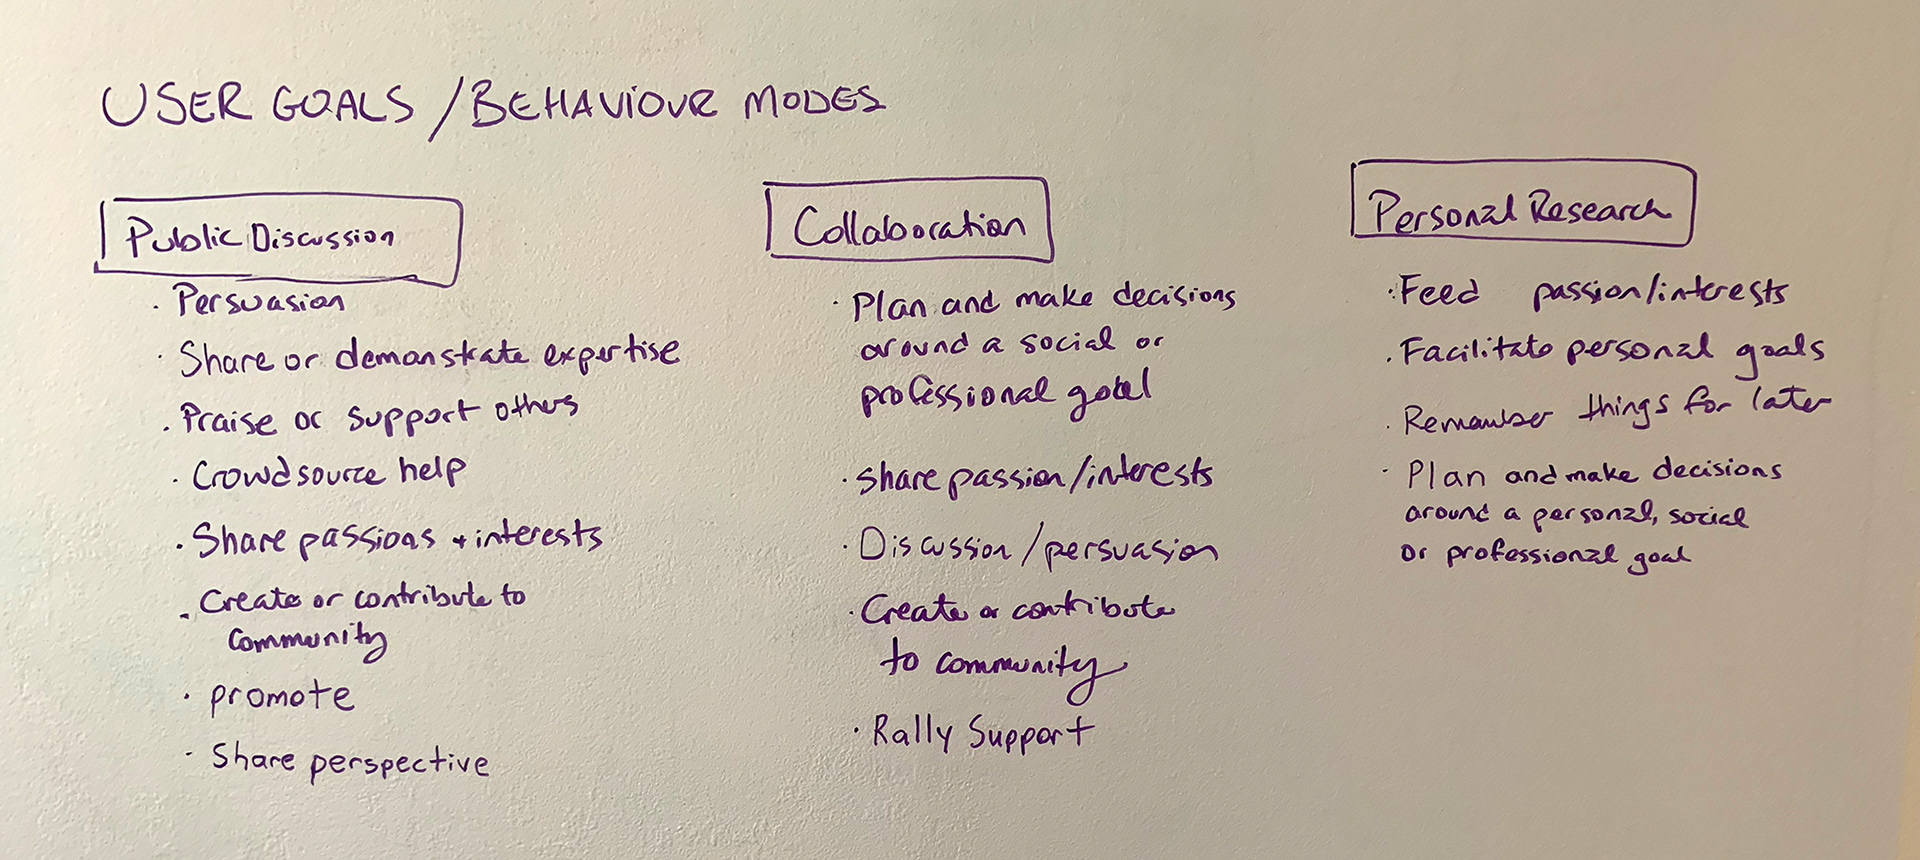 USER GOALS / BEHAVIOUR MODES
Public Discussion
· Persuasion
· Share or demonstrate expertise
· Praise or support others
· Crowdsource help
· Share passions + interests
· Create or contribute to
community
· promote
· Share perspective
Collaboration
· Plan and make decisions
around a social or
professional goal
· Share passion/interests
· Discussion/persuasion
· Create or contribute
to community
· Rally Support
Personal Research
· Feed passion/interests
· Facilitate personal goals
· Remember things for later
· Plan and make decisions
around a personal, social
or professional goal